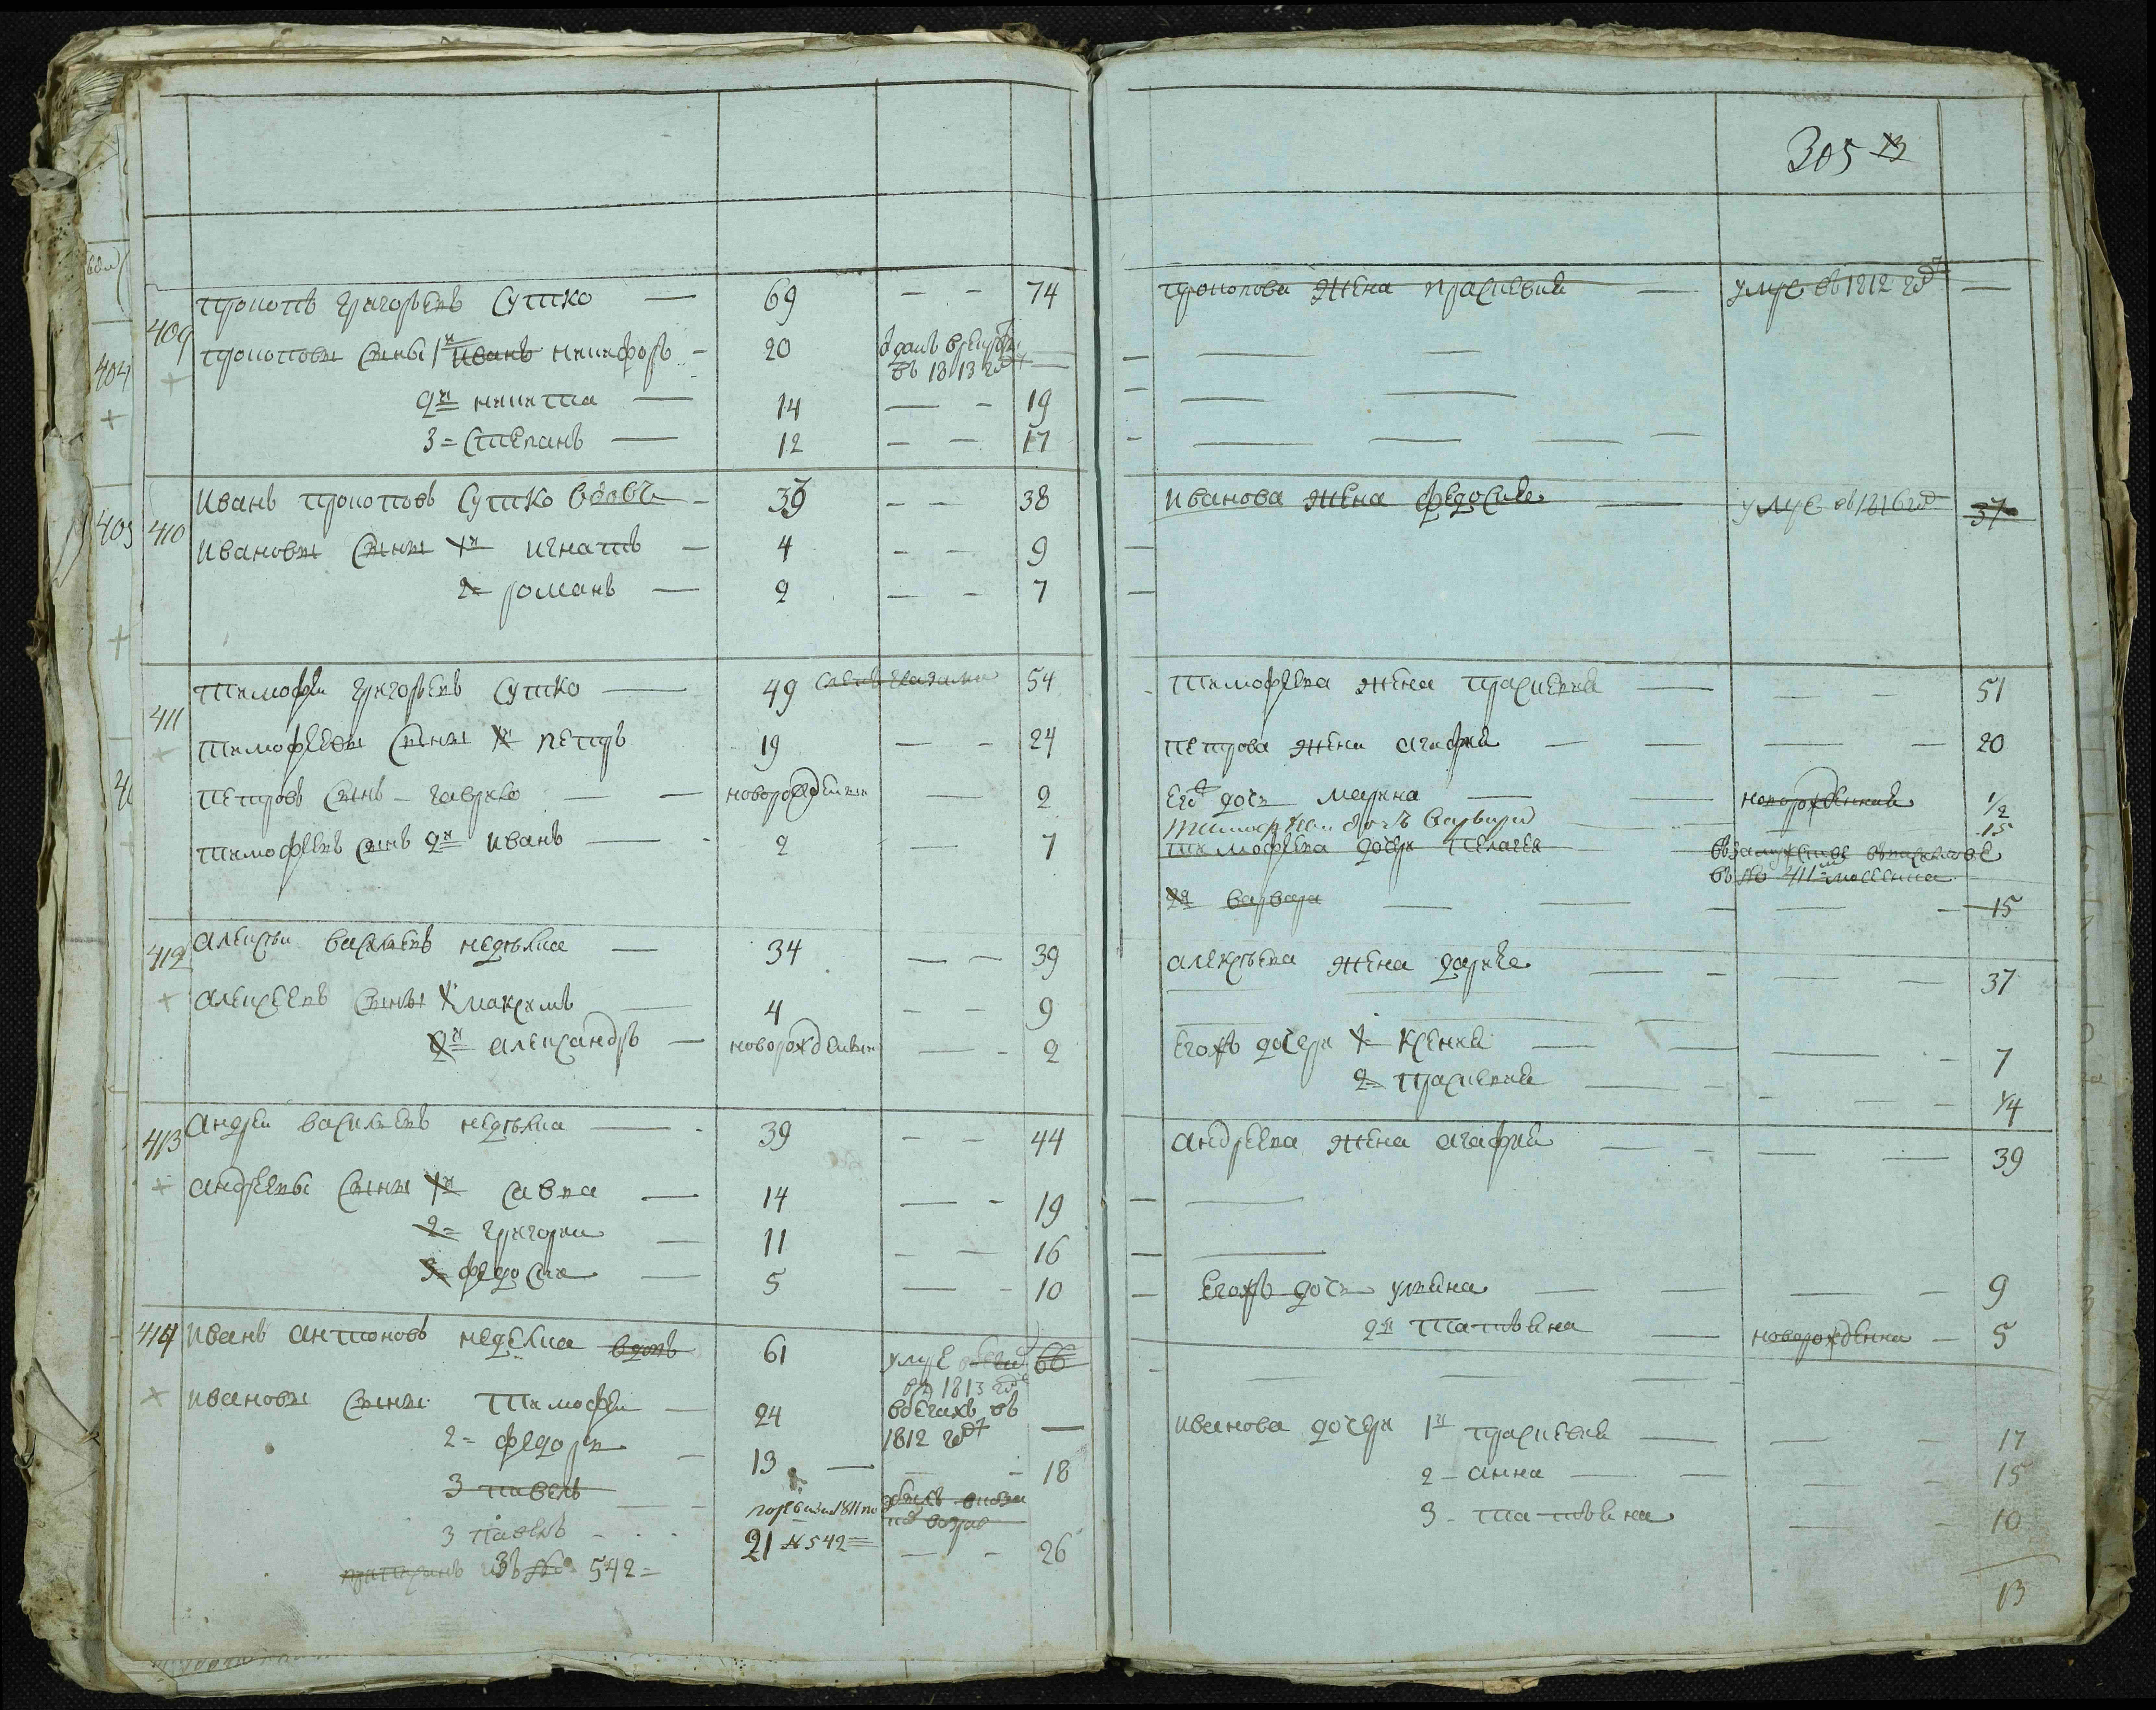 305
409 Прокопъ Григорьевъ Сушко — 69 — — 74
Прокоповы сыны 1й Иванъ Никифоръ — 20 отданъ в рекруты
въ 1813 году —
2й Никита — 14 — — 19
3 = Степанъ — 12 — — 17
410 Иванъ Прокоповъ Сушко вдовъ — 33 — — 38
Ивановы сыны 1й Игнатъ — 4 — — 9
2 = Романъ — 2 — — 7
411 Тимофей Григорьевъ Сушко — 49 54
Тимофеевы сыны 1й Петръ 19 — — 24
Петровъ сынъ — Гаврило — — новорожденны — 2
Тимофеевъ сынъ 2й Иванъ — 2 — 7
412 Алексей Васильевъ Неделка — 34 — — 39
Алексеевъ сыны 1 Максимъ — 4 — — 9
2й Александръ — новорожденны — 2
413 Андрей Васильевъ Неделка — 39 — — 44
Андреевы сыны 1й Савка — 14 — — 19
2 = Григорей — 11 — — 16
3 = Федосей — 5 — — 10
414 Иванъ Антоновъ Неделка вдовъ 61 умре 66
в 1813 годе
Ивановы сыны Тимофей — 24 в бегахъ въ
1812 годе —
2 = Федоръ — 13 — — 18
3 Павелъ
3 Павелъ 21 № 542 — — 26
въ № 542 =
Прокопова жена Праскевия — умре въ 1812 году —
Иванова жена Федосия — умре въ 1816 году 37
Тимофеева жена Праскевия — — — 51
Петрова жена Агафия — — — 20
Его дочь Марина — новорожденная 1/2
Тимофеева дочь Варвара 15
Тимофеева дочери Пелагея въ замужстве
въ № 411
2я Варвара — — — 15
Алексеева жена Дарья — — — 37
Егожъ дочери 1 Ксения — — — 7
2 = Праскевия — — — 1/4
Андреева жена Агафия — — — 39
Егожъ дочь Ульяна — — — 9
2я Татьяна — новорожденна — 5
Иванова дочери 1я Праскевия — — — 17
2 — Анна — — 15
3 — Татьяна — — 10
13